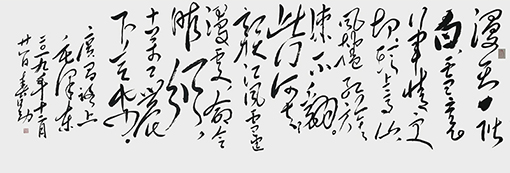 漫天皆
白雪里行
军情更
迫头上高山
风卷红旗
冻不翻
此行何去
赣江风雪迷
漫处命令
昨颁
十万工农
下吉安
广昌路上
毛泽东
二〇一九年十二月